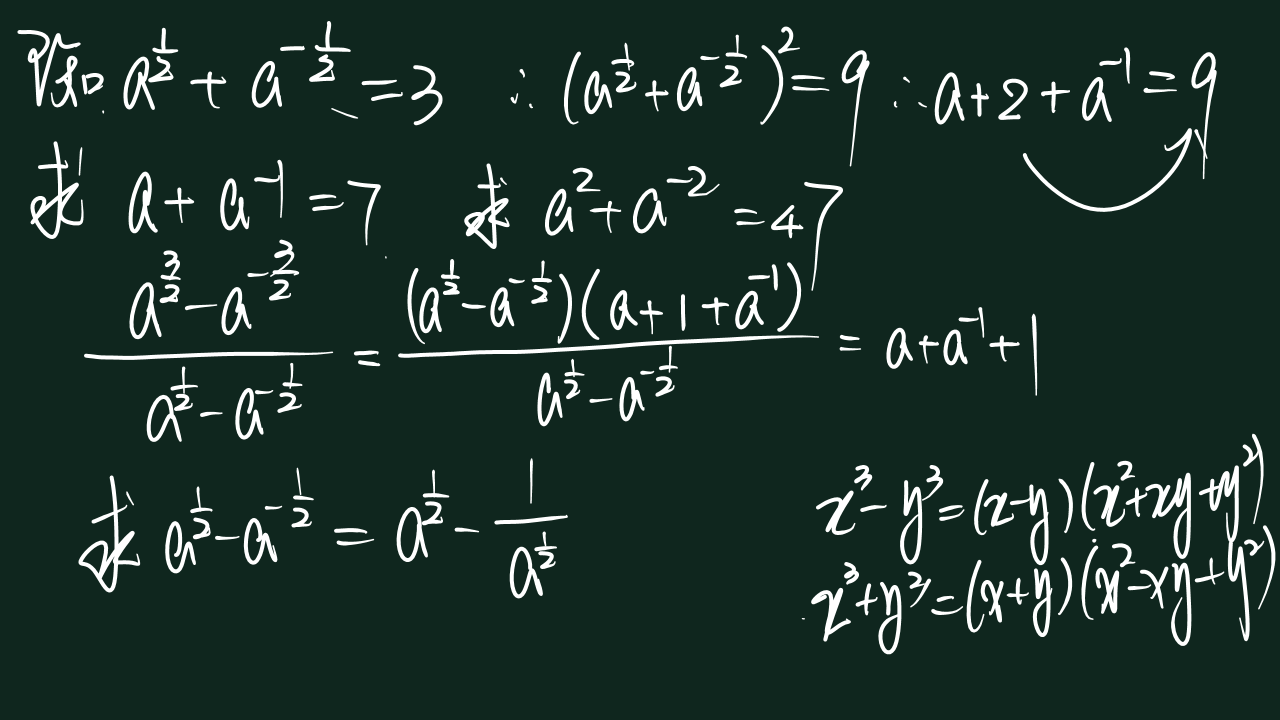 已知 a^{1/2} + a^{-1/2} = 3 ∴ (a^{1/2} + a^{-1/2})^2 = 9 ∴ a + 2 + a^{-1} = 9
求 a + a^{-1} = 7 求 a^2 + a^{-2} = 47
(a^{3/2} - a^{-3/2}) / (a^{1/2} - a^{-1/2}) = (a^{1/2} - a^{-1/2})(a + 1 + a^{-1}) / (a^{1/2} - a^{-1/2}) = a + a^{-1} + 1
求 a^{1/2} - a^{-1/2} = a^{1/2} - 1 / a^{1/2}
x^3 - y^3 = (x - y)(x^2 + xy + y^2)
x^3 + y^3 = (x + y)(x^2 - xy + y^2)